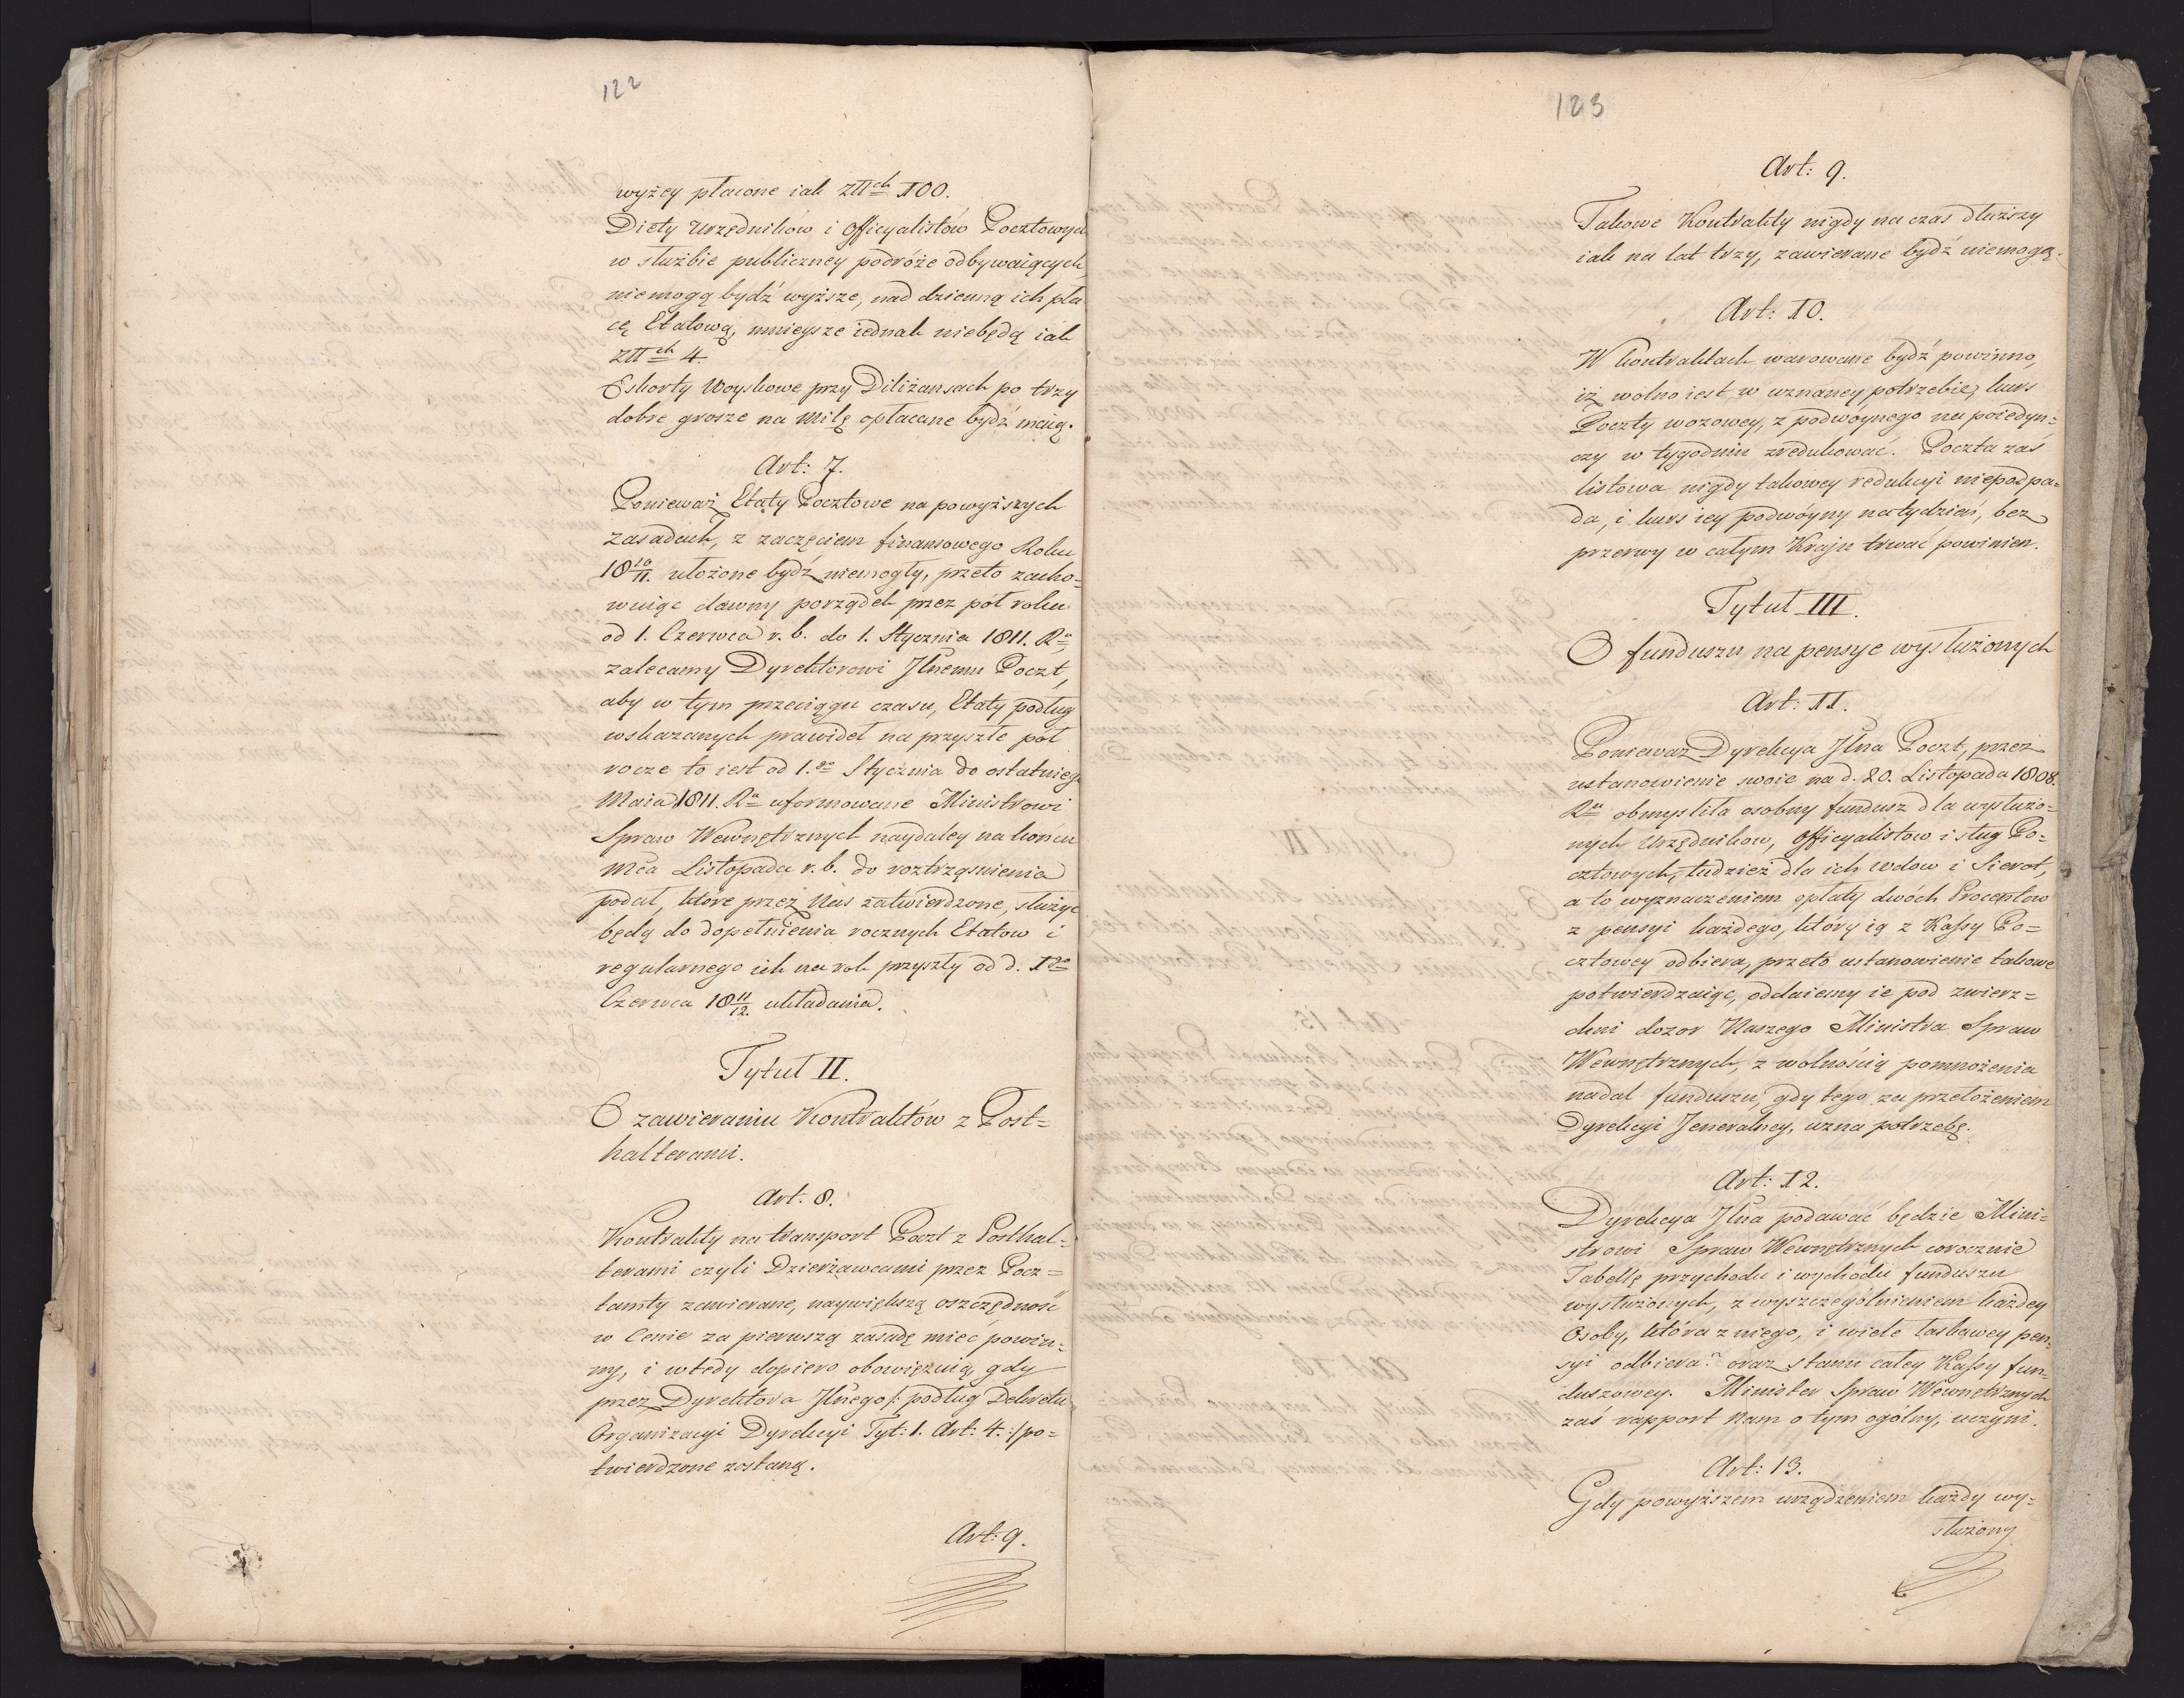 122
wyżey płacone iak złłch 100.
Diety Urzędników i Officyalistów Pocztowych
w służbie publiczney podróże odbywaiących,
niemogą bydź wyższe, nad dzienną ich pła
cę Etatową, mnieysze iednak niebędą iak
złłch 4.
Eskorty Woyskowe przy Diliżansach po trzy
dobre grosze na Milę opłacane bydź maią.
Art: 7.
Ponieważ Etaty Pocztowe na powyższych
zasadach, z zaczęciem finansowego Roku
18 10/11. ułożone bydź niemogły, przeto zacho=
wuiąc dawny porządek przez pół roku
od 1. Czerwca r. b. do 1. Stycznia 1811. Ru,
zalecamy Dyrektorowi Jlnemu Poczt,
aby w tym przeciągu czasu, Etaty podług
wskazanych prawideł na przyszłe pół
rocze to iest od 1.go Stycznia do ostatniego
Maia 1811. Ru uformowane Ministrowi
Spraw Wewnętrznych naydaley na końcu
Mca Listopada r. b. do roztrząśnienia
podał, które przez Nas zatwierdzone, służyć
będą do dopełnienia rocznych Etatow i
regularnego ich na rok przyszły od d. 1go
Czerwca 18 11/12. układania.
Tytuł II.
O zawieraniu Kontraktów z Post=
halterami.
Art. 8.
Kontrakty na transport Poczt z Posthal=
terami czyli Dzierżawcami przez Pocz=
tamty zawierane, naywiększą oszczędność
w Cenie za pierwszą zasadę mieć powin=
ny, i wtedy dopiero obowięzuią, gdy
przez Dyrektora Jlnego /: podług Dekretu
Organizacyi Dyrekcyi Tyt: 1. Art: 4. :/ po=
twierdzone zostaną.
Art: 9.
123
Art: 9.
Takowe Kontrakty nigdy na czas dłuższy
iak na lat trzy, zawierane bydź niemogą.
Art: 10.
W kontraktach warowane bydź powinno,
iż wolno iest, w uznaney potrzebie, kurs
Poczty wozowey, z podwóynego na poiedyn=
czy w tygodniu zredukować. Poczta zaś
listowa nigdy takowey redukcyi niepodpa=
da, i kurs iey podwóyny na tydzień, bez
przerwy w całym Kraju trwać powinien.
Tytuł III.
O funduszu na pensye wysłużonych
Art: 11.
Ponieważ Dyrekcya Jlna Poczt, przez
ustanowienie swoie na d. 20. Listopada 1808.
Ru obmyśliła osobny fundusz dla wysłużo=
nych Urzędnikow, Officyalistow i sług Po=
cztowych, tudzież dla ich Wdow i Sierot,
a to wyznaczeniem opłaty dwóch Procentow
z pensyi każdego, który ią z Kassy Po=
cztowey odbiera, przeto ustanowienie takowe
potwierdzaiąc, oddaiemy ie pod zwierz=
chni dozor Naszego Ministra Spraw
Wewnętrznych, z wolnością pomnożenia
nadal funduszu, gdy tego za przełożeniem
Dyrekcyi Jeneralney, uzna potrzebę.
Art: 12.
Dyrekcya Jlna podawać będzie Mini=
strowi Spraw Wewnętrznych corocznie
Tabellę przychodu i wychodu funduszu
wysłużonych, z wyszczególnieniem każdey
Osoby, która z niego, i wiele łaskawey pen=
syi odbiera? oraz stanu całey Kassy fun=
duszowey. Minister Spraw Wewnętrznych
zaś rapport Nam o tym ogólny, uczyni.
Art: 13.
Gdy powyższem urządzeniem każdy wy=
służony